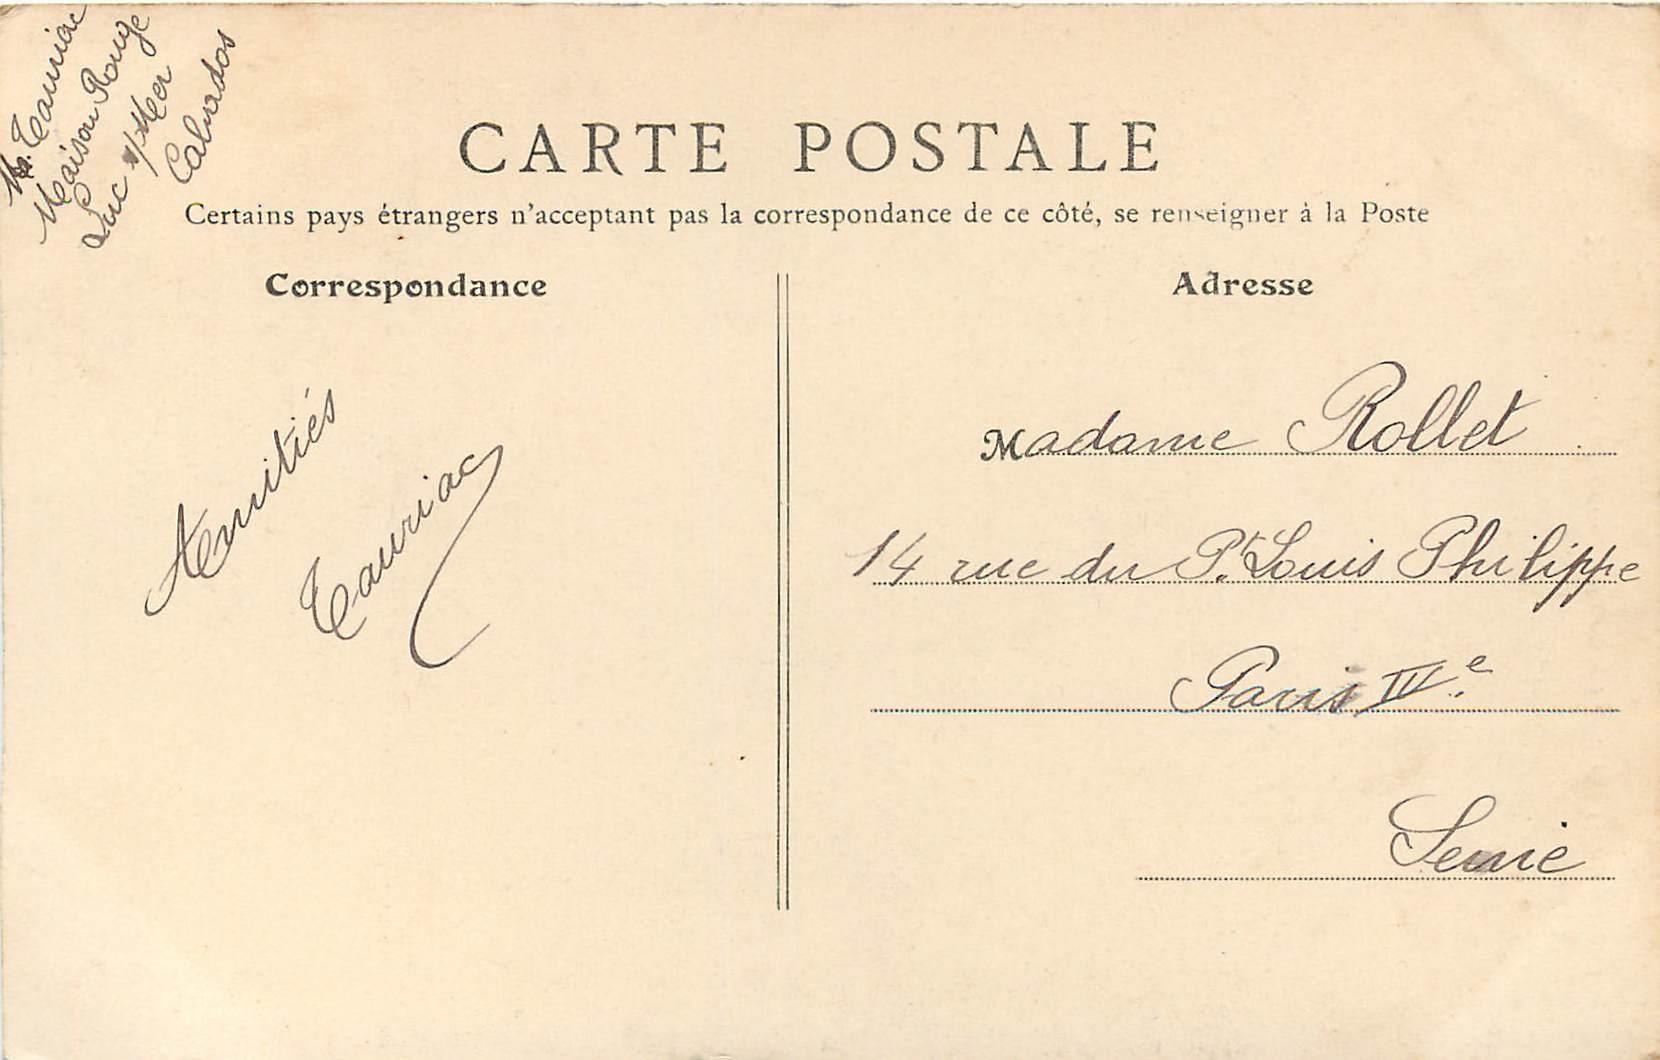 M. Tauriac
Maison Rouge
Luc s/Mer
Calvados
CARTE POSTALE
Certains pays étrangers n'acceptant pas la correspondance de ce côté, se renseigner à la Poste
Correspondance
Amitiés
Tauriac
Adresse
Madame Rollet
14 rue du Pt. Louis Philippe
Paris IVe.
Seine